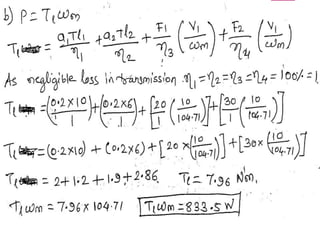 b) P = Tₗωm
Tₗ = a₁Tl₁/η₁ + a₂Tl₂/η₂ + F₁/η₃ (V₁/ωm) + F₂/η₄ (V₁/ωm)
As negligible loss in transmission η₁=η₂=η₃=η₄=100%=1
Tₗ = (0.2×10/1) + (0.2×6/.1) + [20/1 (10/104.71)] + [30/1 (10/104.71)]
Tₗ = (0.2×10) + (0.2×6) + [20×(10/104.71)] + [30×(10/104.71)]
Tₗ = 2+1.2+1.9+2.86 Tₗ = 7.96 Nm,
Tₗωm = 7.96×104.71 Tₗωm = 833.5W